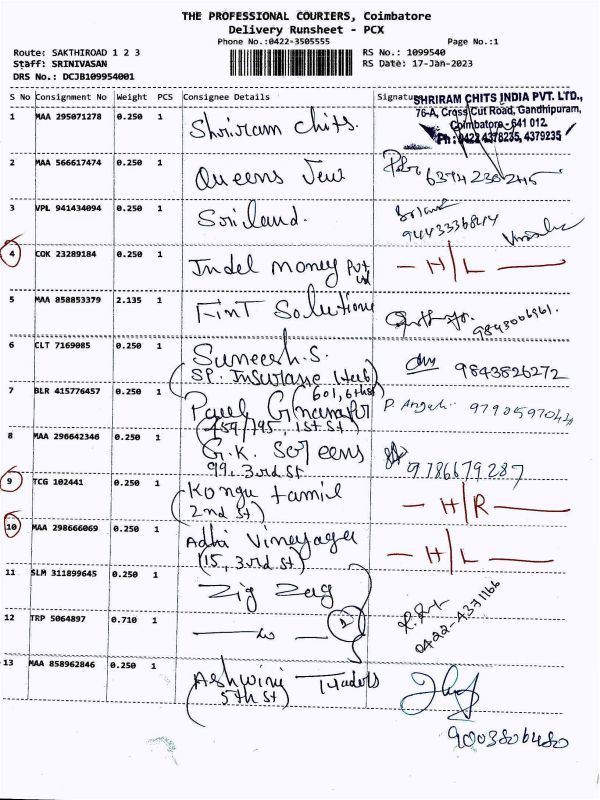 THE PROFESSIONAL COURIERS, Coimbatore
Delivery Runsheet - PCX
Phone No.:0422-3505555 Page No.:1
Route: SAKTHIROAD 1 2 3 RS No.: 1099540
Staff: SRINIVASAN RS Date: 17-Jan-2023
DRS No.: DCJB109954001
S No Consignment No Weight PCS Consignee Details Signature
SHRIRAM CHITS INDIA PVT. LTD.,
76-A, Cross Cut Road, Gandhipuram,
Coimbatore - 641 012.
Ph : 0422 4378235, 4379235
1 MAA 295071278 0.250 1 Shriram Chits.
2 MAA 566617474 0.250 1 Queens
3 VPL 941434094 0.250 1 Sriland. Sriland
9443336844
4 COK 23289184 0.250 1 Indel money Pvt Ltd - H/L -
5 MAA 858853379 2.135 1 FinT Solutions 9843006961.
6 CLT 7169085 0.250 1 Suneesh.S. 9843826272
(SP. Insurance Hub)
(601, 6th st)
7 BLR 415776457 0.250 1 Paul Gnanapr P. Anjali.
(459/195, 1st St.)
8 MAA 296642346 0.250 1 G.K. Screens 9786679287
99, 3rd st
9 TCG 102441 0.250 1 Kongu tamil - H/R -
(2nd st)
10 MAA 298666069 0.250 1 Adhi Vinayaga - H/L -
(15, 3rd st)
11 SLM 311899645 0.250 1 Zig Zag
0422-4371166
12 TRP 5064897 0.710 1
13 MAA 858962846 0.250 1 Ashwini Traders
(5th st)
9003806480